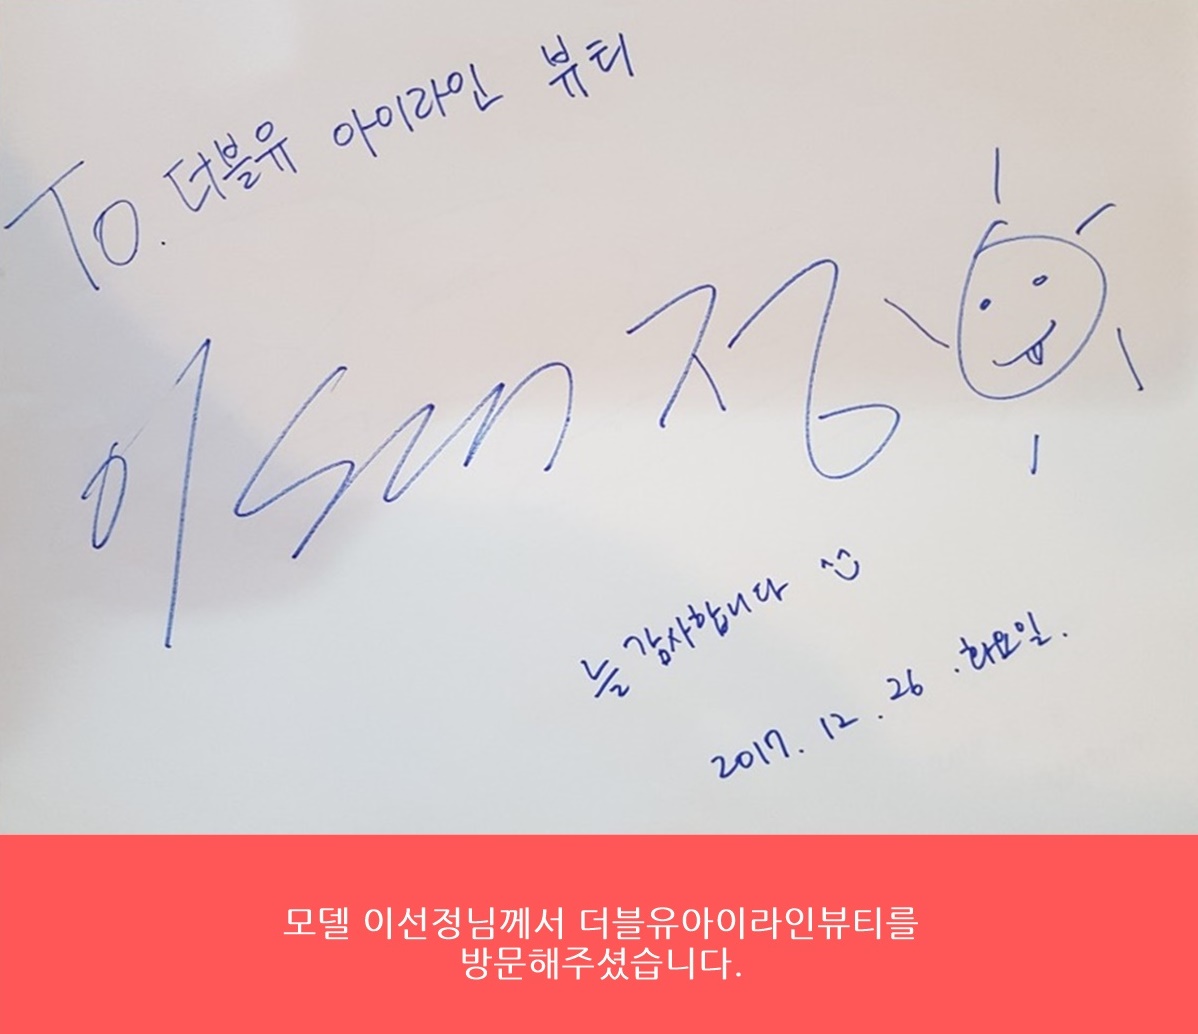 To. 더블유 아이라인 뷰티
이선정
늘 감사합니다 ^^
2017. 12. 26 .화요일.
모델 이선정님께서 더블유아이라인뷰티를
방문해주셨습니다.